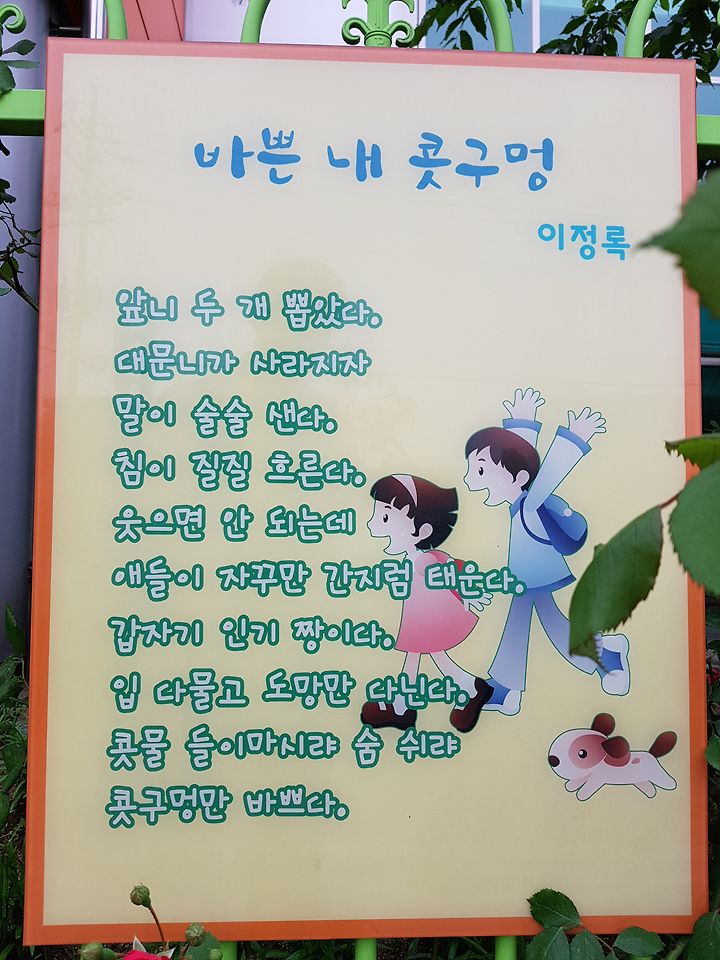 바쁜 내 콧구멍
이정록
앞니 두 개 뽑았다.
대문니가 사라지자
말이 술술 샌다.
침이 질질 흐른다.
웃으면 안 되는데
애들이 자꾸만 간지럼 태운다.
갑자기 인기 짱이다.
입 다물고 도망만 다닌다.
콧물 들이마시랴 숨 쉬랴
콧구멍만 바쁘다.